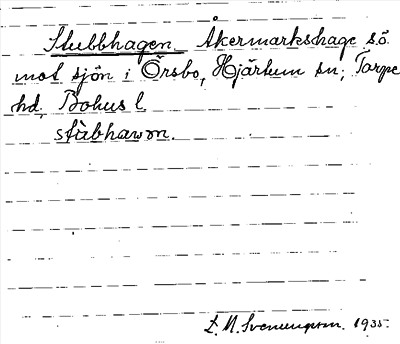 Stubbhagen. Åkermarkshage s.ö.
mot sjön i Örsbo, Hjärtum sn; Torpe
hd, Bohus l.
stùbhawən.
1935.